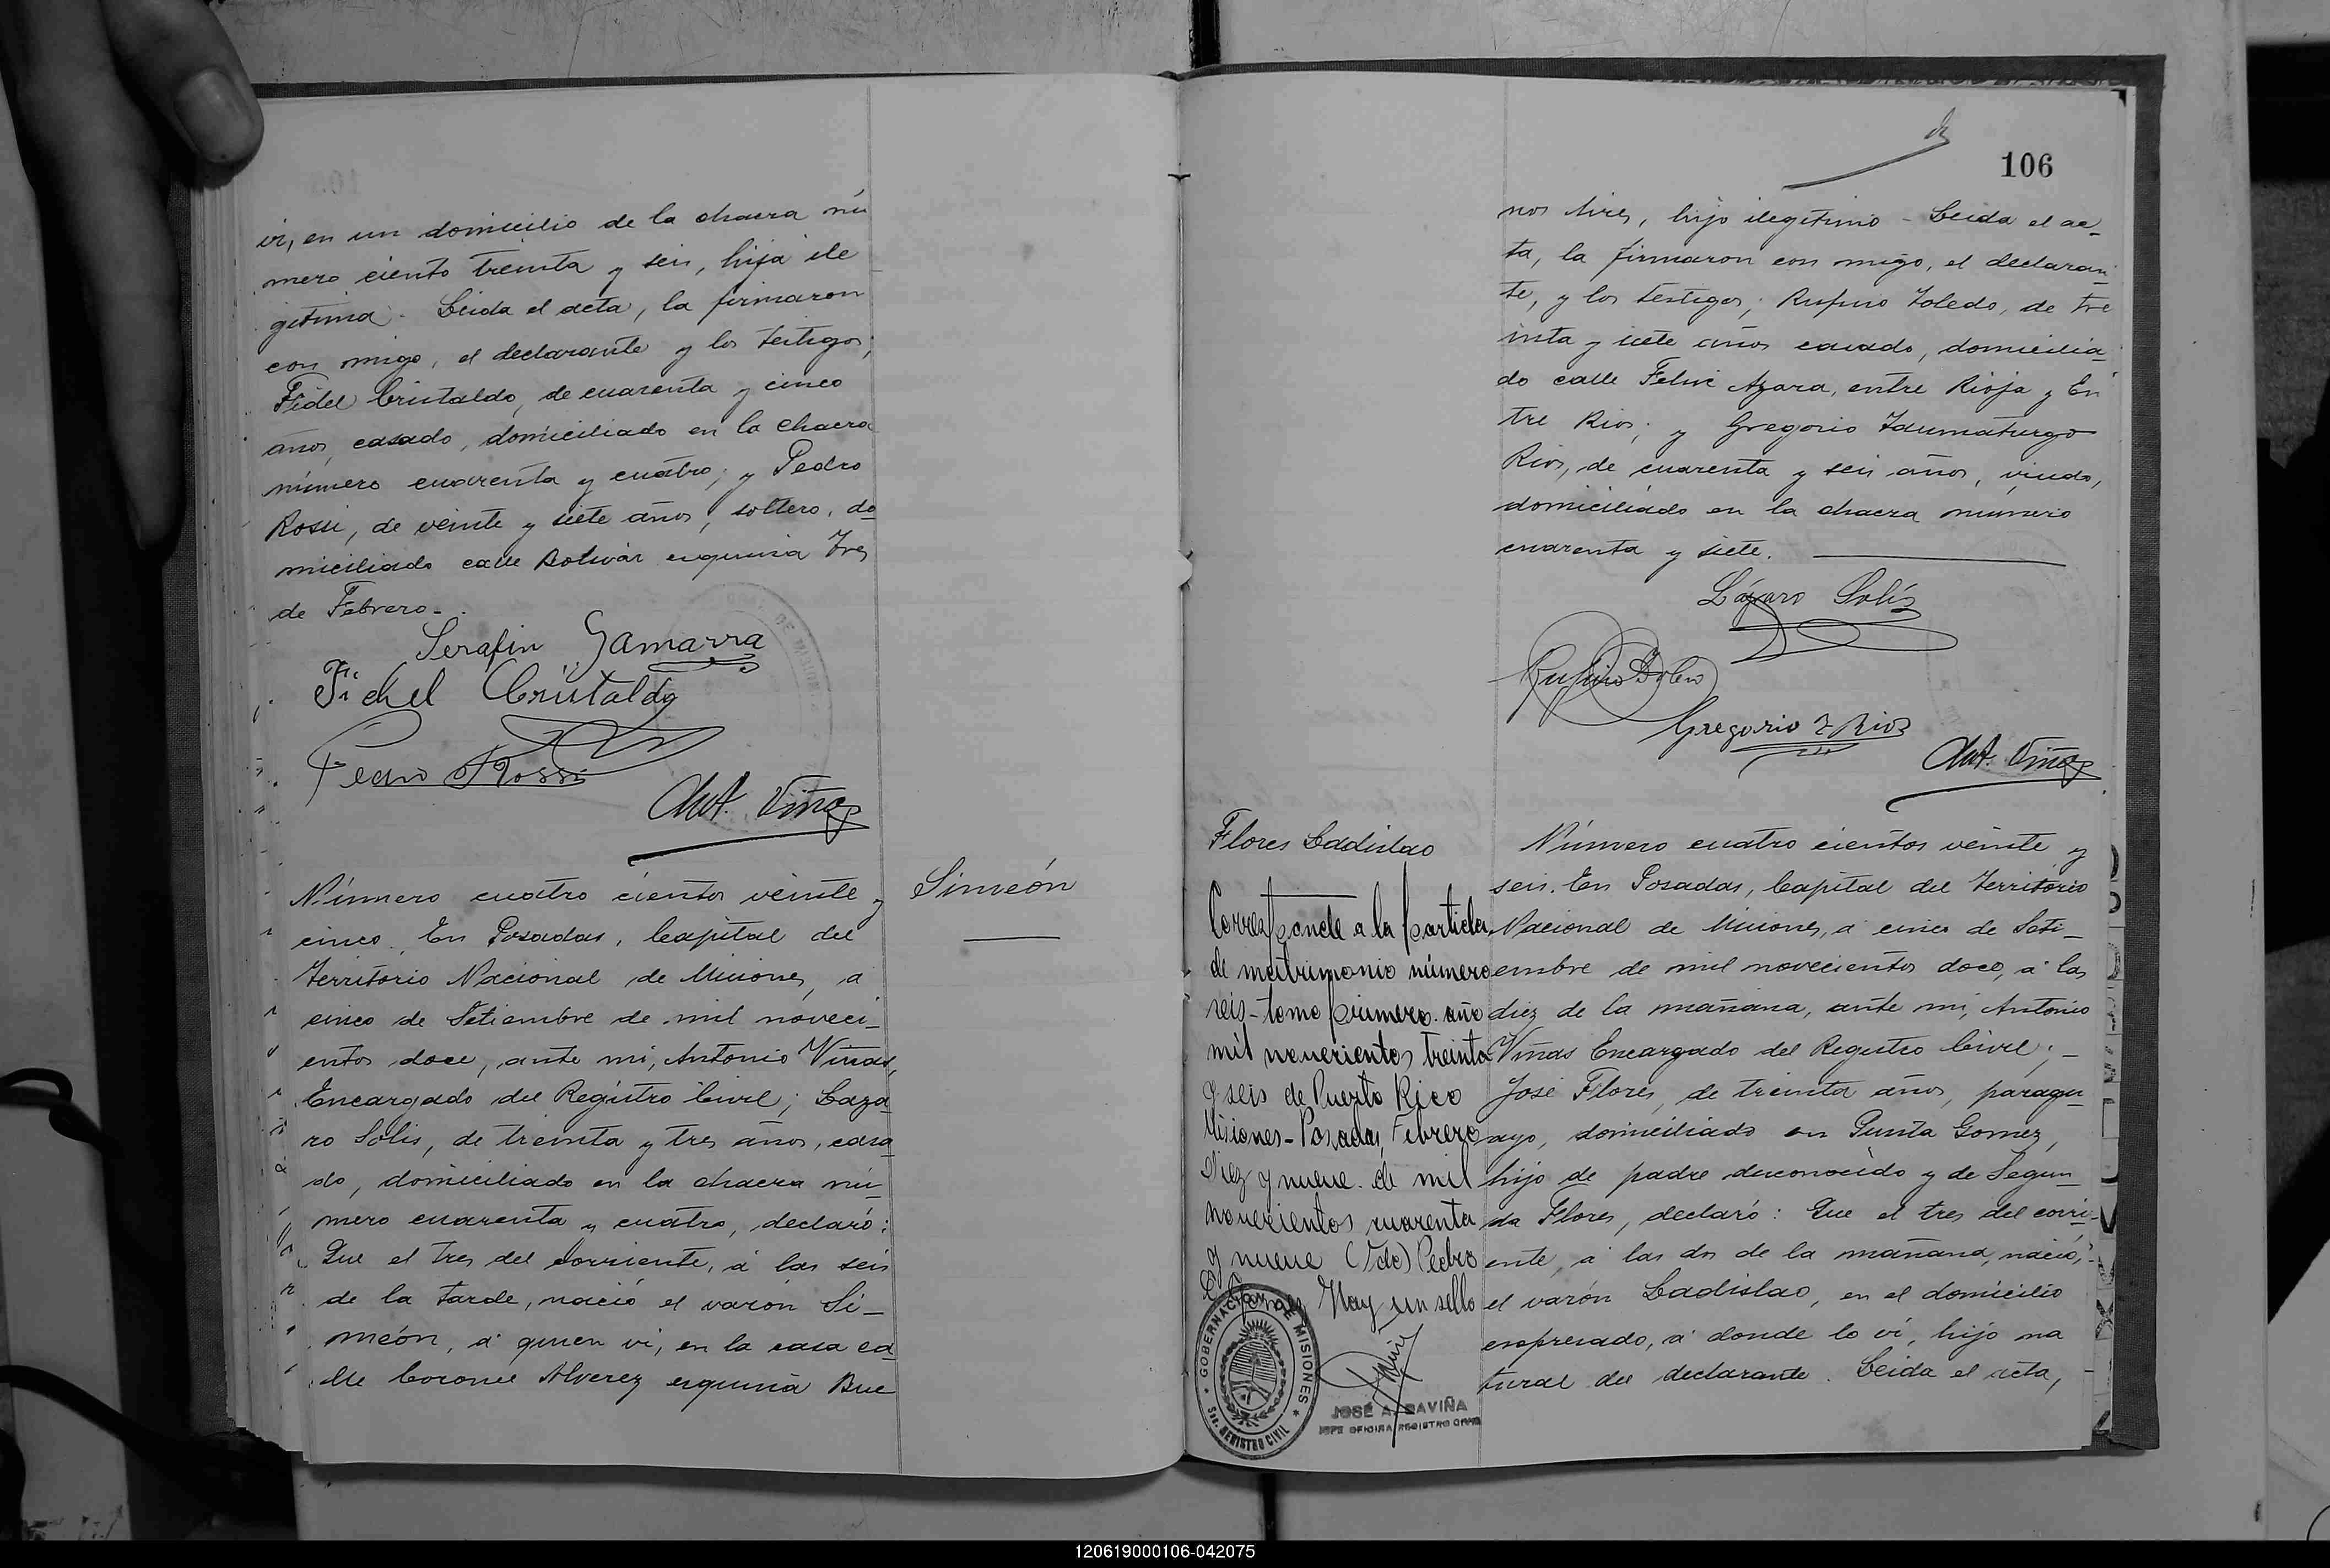 vi, en un domicilio de la chacra nú
mero ciento treinta y seis, hija ile
gitima. Leida el acta, la firmaron
con migo, el declarante y los testigos;
Fidel Cristaldo, de cuarenta y cinco
años, casado, domiciliado en la chacra
número cuarenta y cuatro; y Pedro
Rossi, de veinte y siete años, soltero, do
miciliado calle Bolivar esquina Tres
de Febrero.
Serafin Gamarra
Fidel Cristaldo
Pedro Rossi
Ant. Viñas
Número cuatro cientos veinte y
cinco. En Posadas, Capital del
Territorio Nacional de Misiones, á
cinco de Setiembre de mil noveci_
entos doce, ante mi, Antonio Viñas,
Encargado del Registro Civil; Laza_
ro Solis, de treinta y tres años, casa_
do, domiciliado en la chacra nú_
mero cuarenta y cuatro, declaró:
Que el tres del corriente, á las seis
de la tarde, nació el varón Si_
meón, á quien vi, en la casa ca_
lle Coronel Alverez esquina Bue
Simeón
106
nos Aires, hijo ilegitimo - Leida el ac_
ta, la firmaron con migo, el declaran
te, y los testigos; Rufino Toledo, de tre
inta y siete años casado, domicilia_
do calle Felix Azara, entre Rioja y En
tre Rios; y Gregorio Taumaturgo
Rios, de cuarenta y seis años, viudo,
domiciliado en la chacra número
cuarenta y siete.
Lázaro Solís
Rufino Toledo
Gregorio T Rios
Ant. Viñas
Flores Ladislao
Corresponde a la partida
de matrimonio número
seis - tomo primero. año
mil novecientos treinta
y seis de Puerto Rico
Misiones - Posadas, Febrero
Diez y nueve de mil
novecientos cuarenta
y nueve (Fdo) Pedro
Hay un sello
GOBERNACION DE MISIONES
REGISTRO CIVIL
JOSÉ A. DAVIÑA
JEFE OFICINA REGISTRO CIVIL
Número cuatro cientos veinte y
seis. En Posadas, Capital del Territorio
Nacional de Misiones, á cinco de Seti_
embre de mil novecientos doce, á las
diez de la mañana, ante mi, Antonio
Viñas Encargado del Registro Civil; _
José Flores, de treinta años, paragu_
ayo, domiciliado en Punta Gomez,
hijo de padre desconocido y de Segun_
da Flores, declaró: Que el tres del corri_
ente, á las dos de la mañana, nació,
el varón Ladislao, en el domicilio
expresado, á donde lo vi, hijo na
tural del declarante. Leida el acta,
120619000106-042075